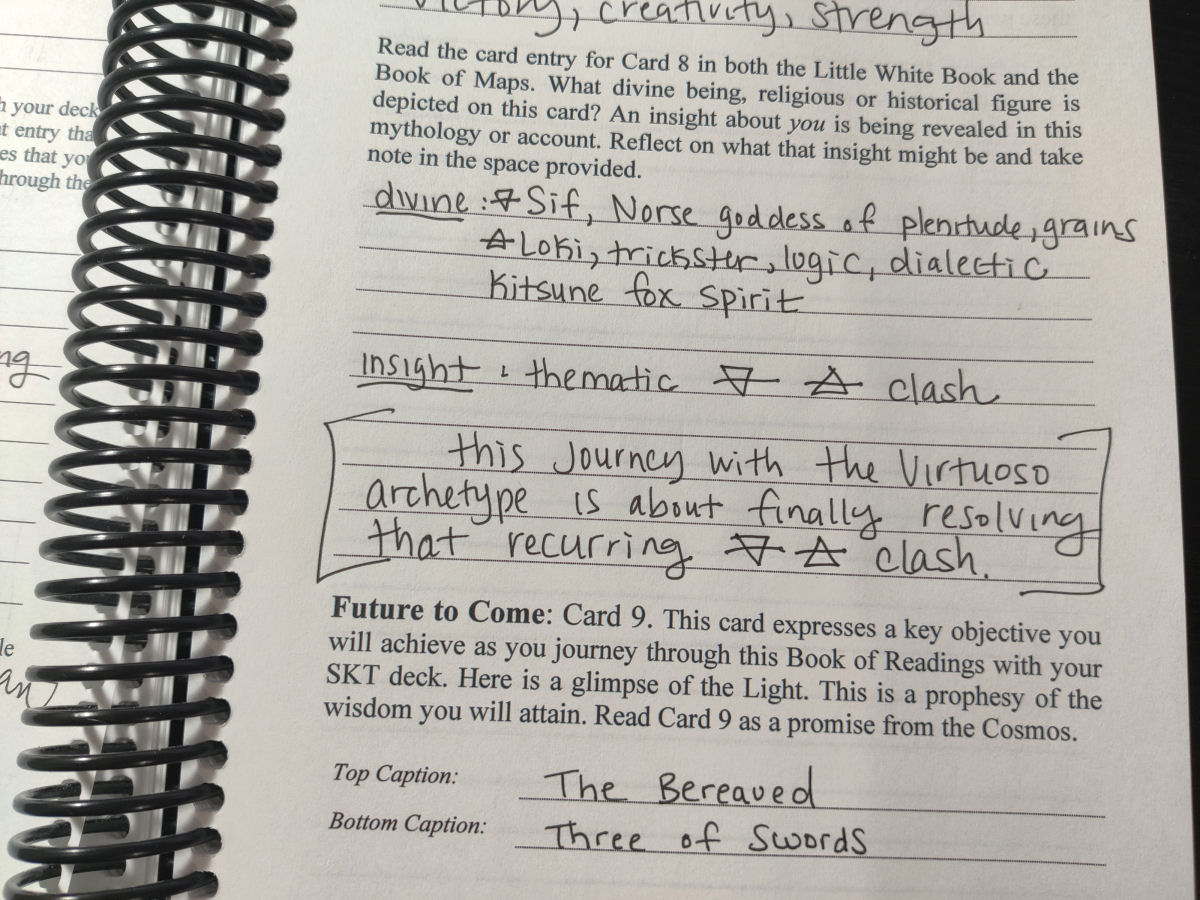 victory, creativity, strength
Read the card entry for Card 8 in both the Little White Book and the
Book of Maps. What divine being, religious or historical figure is
depicted on this card? An insight about you is being revealed in this
mythology or account. Reflect on what that insight might be and take
note in the space provided.
divine : 🜃 Sif, Norse goddess of plenitude, grains
🜁 Loki, trickster, logic, dialectic
Kitsune fox spirit
insight : thematic 🜃 🜁 clash
this Journey with the Virtuoso
archetype is about finally resolving
that recurring 🜃 🜁 clash.
Future to Come: Card 9. This card expresses a key objective you
will achieve as you journey through this Book of Readings with your
SKT deck. Here is a glimpse of the Light. This is a prophesy of the
wisdom you will attain. Read Card 9 as a promise from the Cosmos.
Top Caption: The Bereaved
Bottom Caption: Three of Swords
your deck
entry
that you
through the